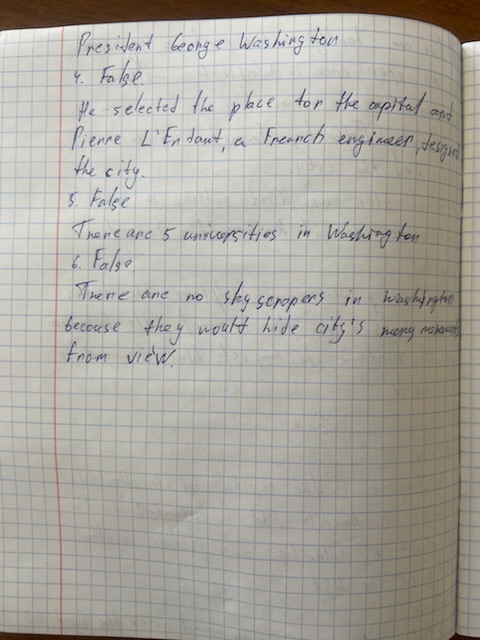 President George Washington
4. False
He selected the place for the capital and
Pierre L'Enfant, a French engineer, designed
the city.
5. False
There are 5 universities in Washington
6. False.
There are no skyscrapers in Washington
because they would hide city's many monuments
from view.